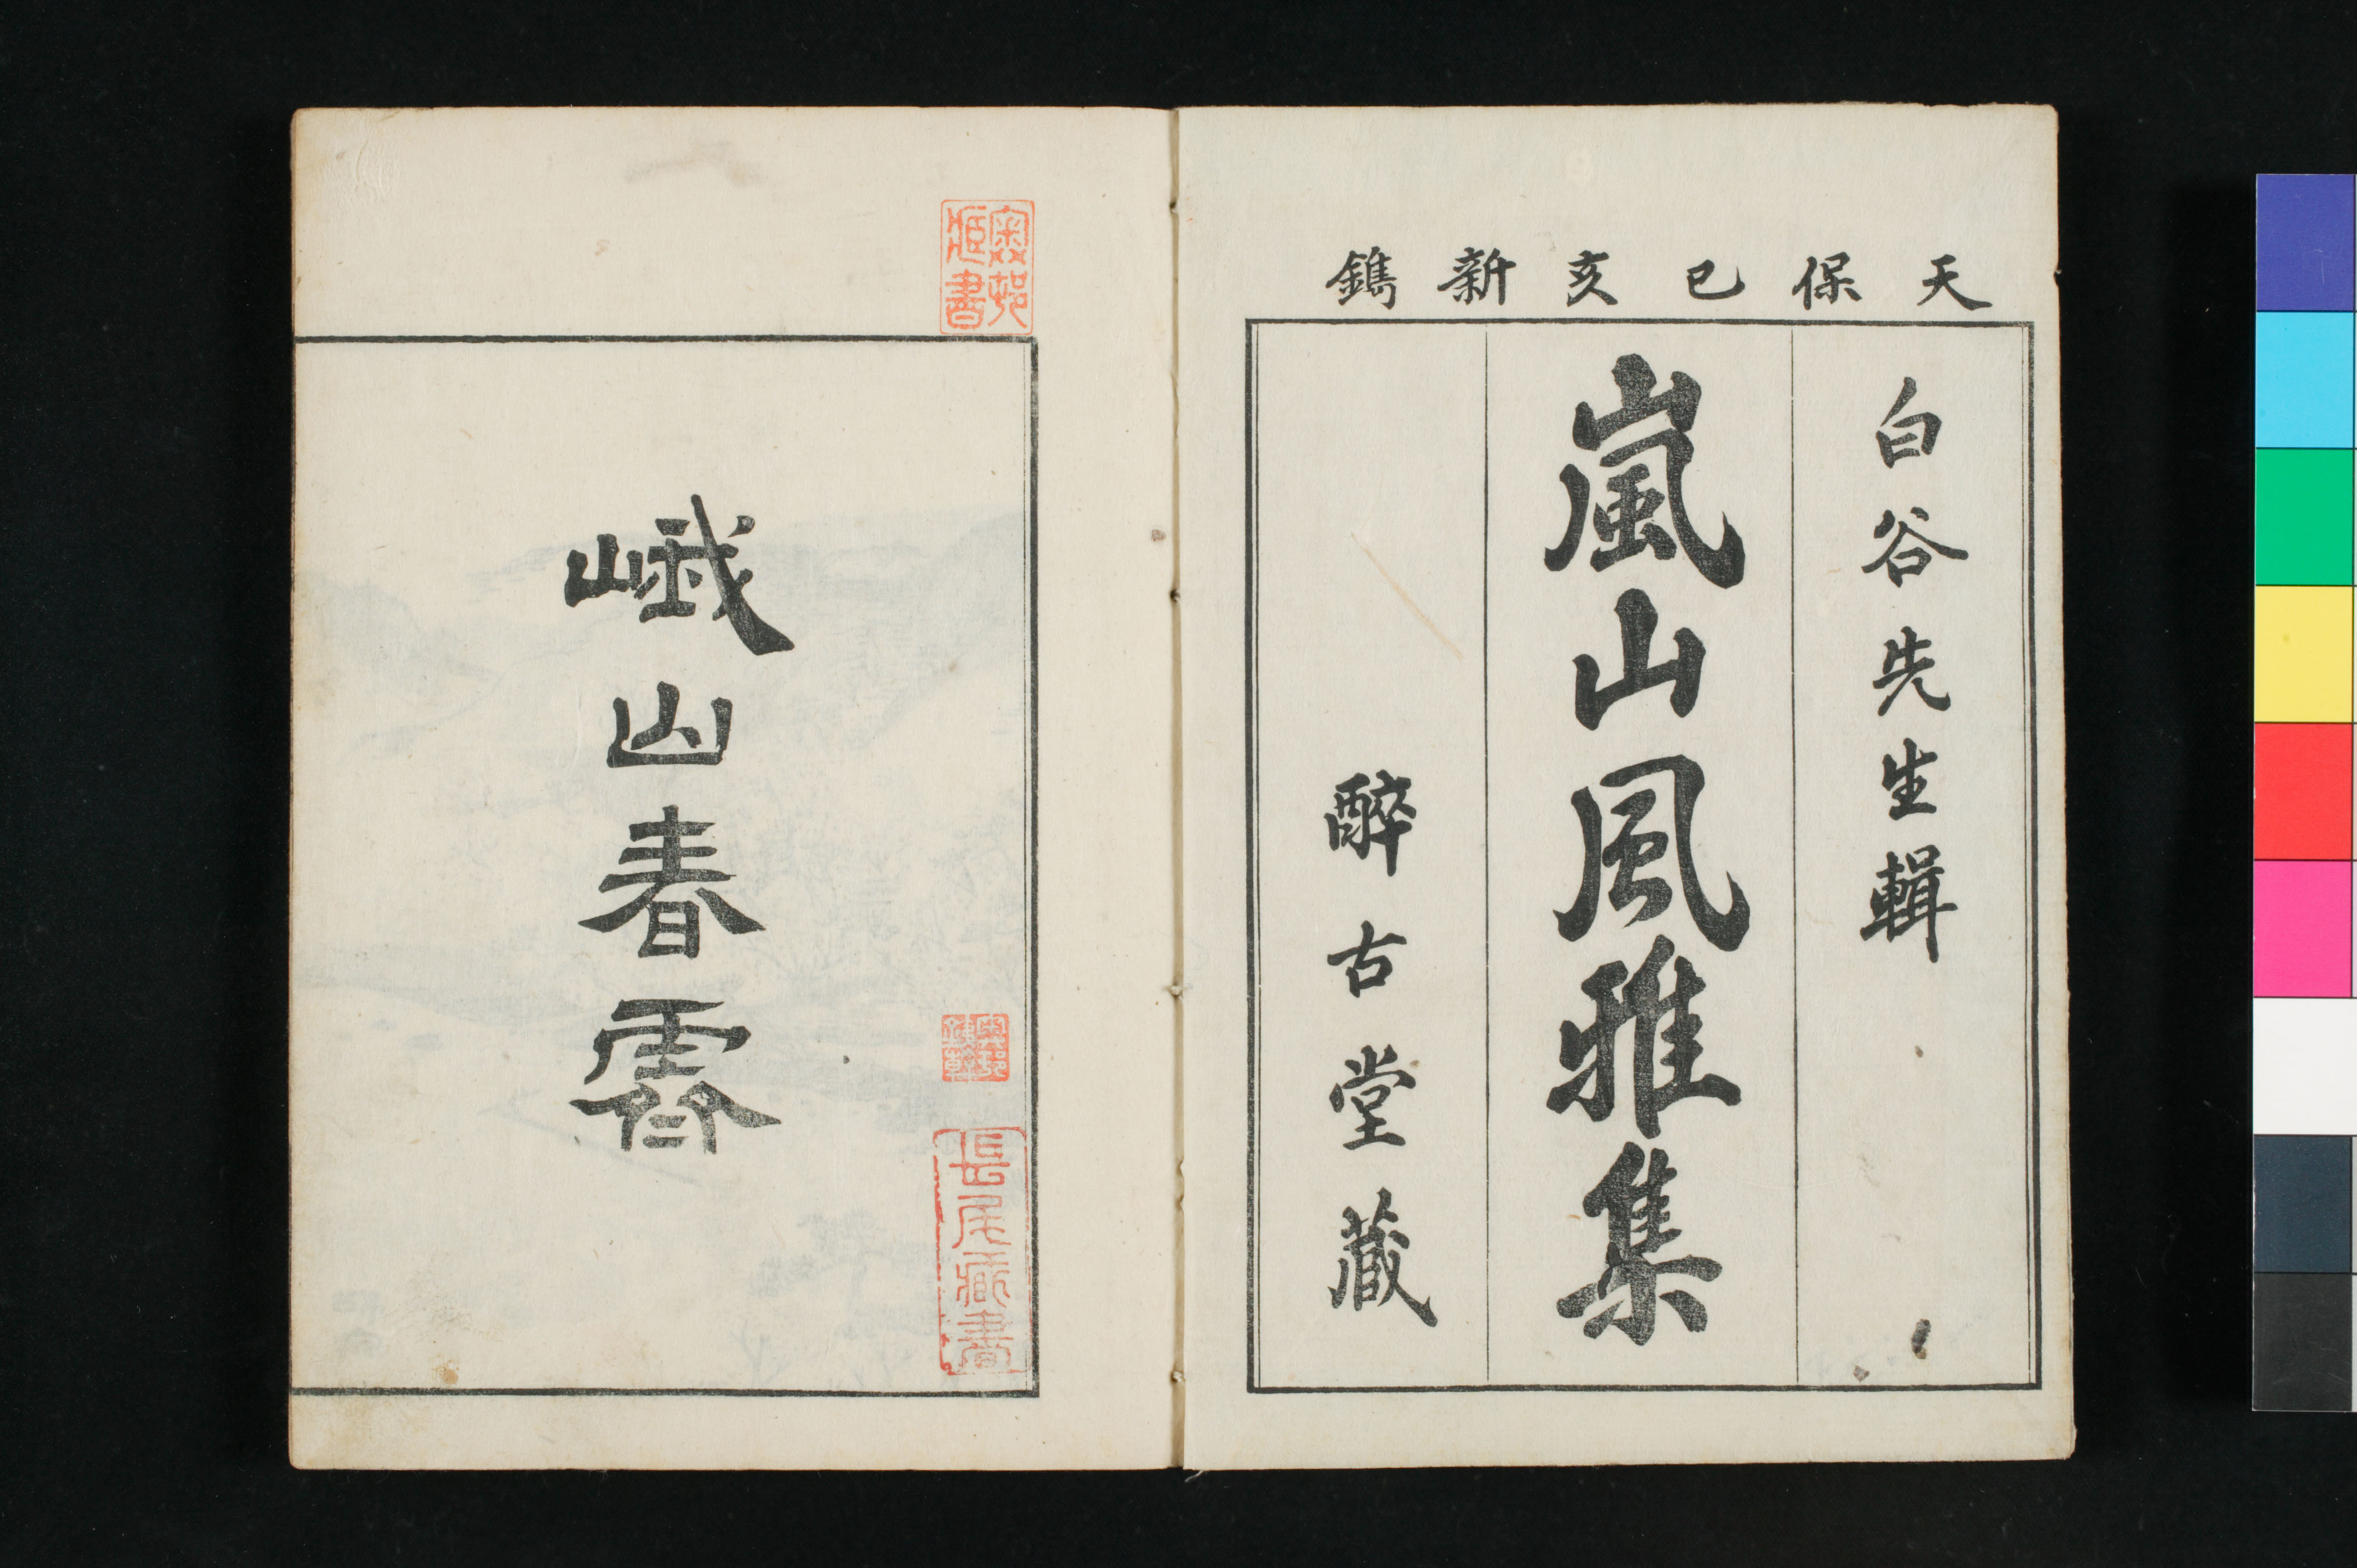 天保己亥新鐫
白谷先生輯
嵐山風雅集
醉古堂藏
峨山春霽
長尾藏書